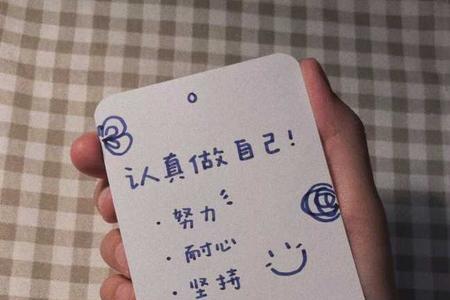 认真做自己！
· 努力
· 耐心
· 坚持